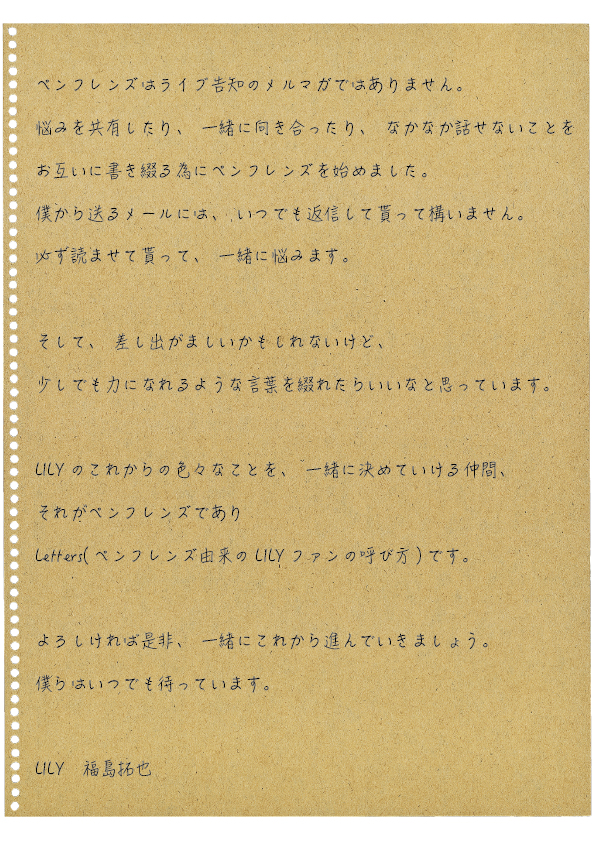 ペンフレンズはライブ告知のメルマガではありません。
悩みを共有したり、 一緒に向き合ったり、 なかなか話せないことを
お互いに書き綴る為にペンフレンズを始めました。
僕から送るメールには、いつでも返信して貰って構いません。
必ず読ませて貰って、 一緒に悩みます。
そして、 差し出がましいかもしれないけど、
少しでも力になれるような言葉を綴れたらいいなと思っています。
LILYのこれからの色々なことを、 一緒に決めていける仲間、
それがペンフレンズであり
Letters(ペンフレンズ由来のLILYファンの呼び方)です。
よろしければ是非、 一緒にこれから進んでいきましょう。
僕らはいつでも待っています。
LILY 福島拓也